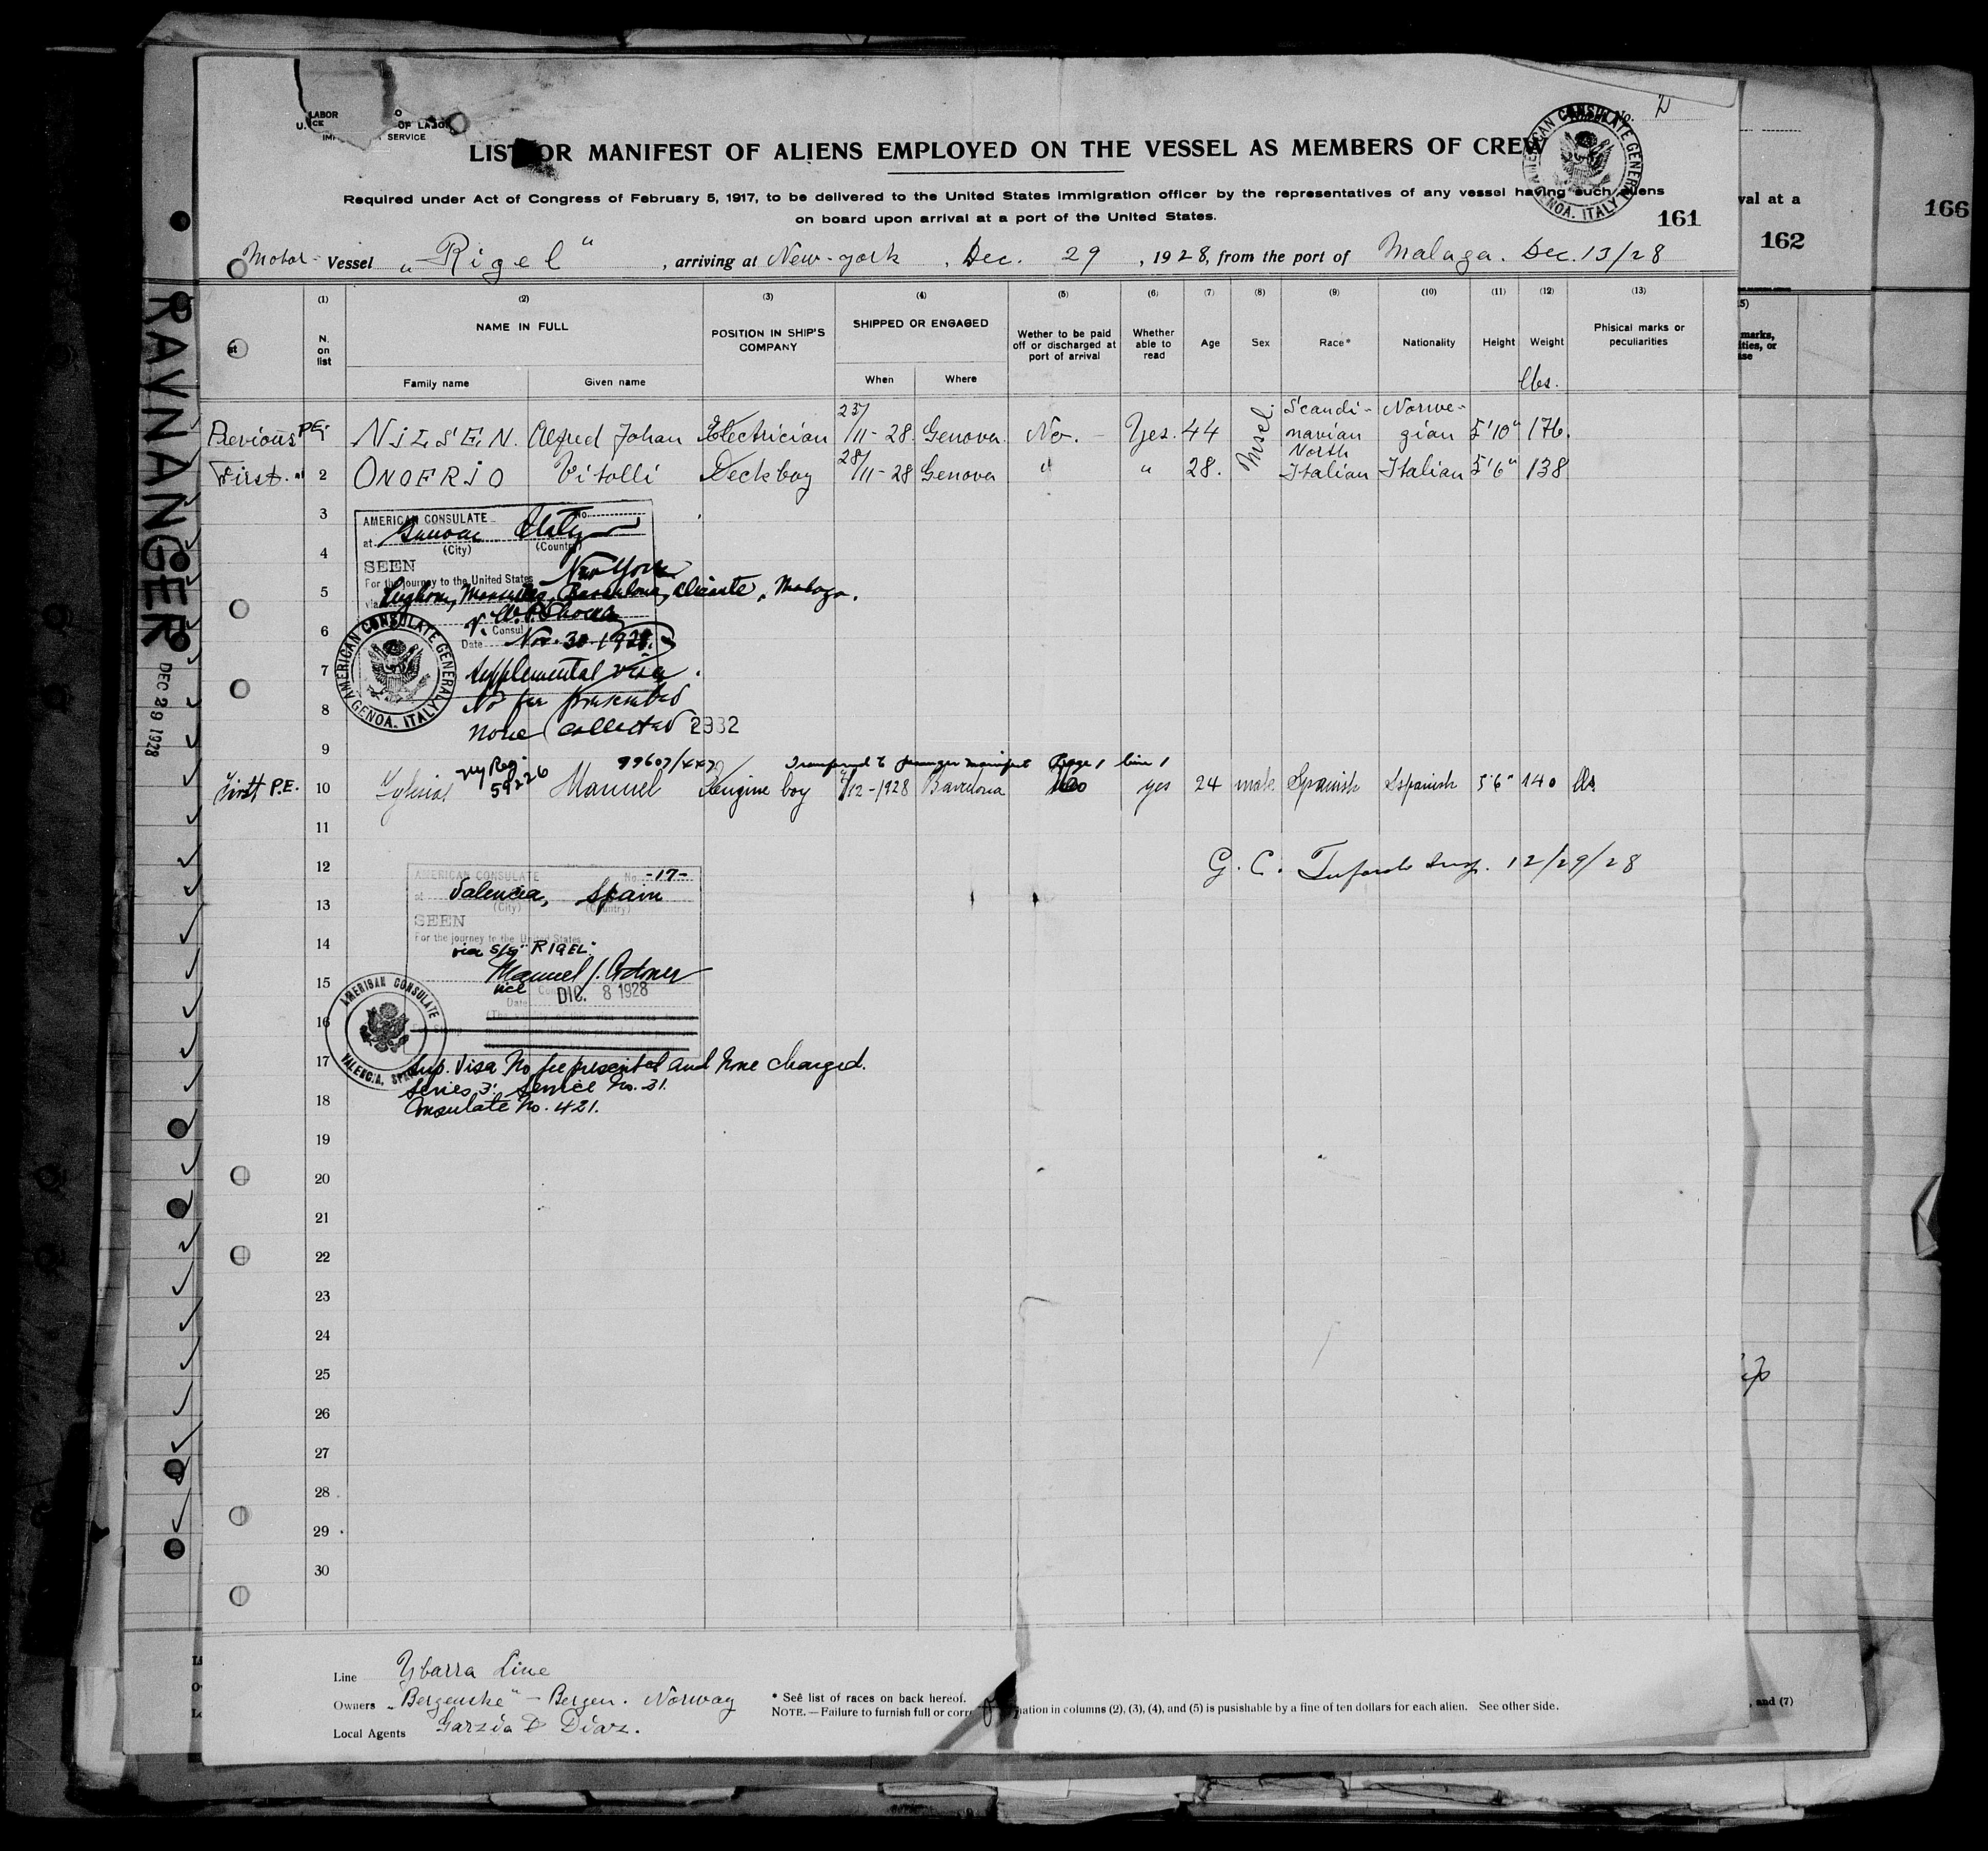 LABOR
OF LABOR
SERVICE
No. 2
LIST OR MANIFEST OF ALIENS EMPLOYED ON THE VESSEL AS MEMBERS OF CREW
AMERICAN CONSULATE GENERAL
GENOA. ITALY
Required under Act of Congress of February 5, 1917, to be delivered to the United States immigration officer by the representatives of any vessel having such aliens
on board upon arrival at a port of the United States.
161
val at a
162
166
Motor Vessel "Rigel", arriving at New-york, Dec. 29, 1928, from the port of Malaga. Dec. 13/28
(1) (2) (3) (4) (5) (6) (7) (8) (9) (10) (11) (12) (13)
N. on list
NAME IN FULL
Family name
Given name
POSITION IN SHIP'S COMPANY
SHIPPED OR ENGAGED
When
Where
Wether to be paid off or discharged at port of arrival
Whether able to read
Age
Sex
Race*
Nationality
Height
Weight
lbs.
Phisical marks or peculiarities
Previous P.E. 1 NILSEN. Alfred Johan Electrician 23/11-28. Genova No. - Yes. 44 Scandinavian Norwegian 5'10" 176.
First. 2 ONOFRIO Vitolli Deckboy 28/11-28 Genova " " 28. North Italian Italian 5'6" 138
3
AMERICAN CONSULATE No.
at Genoa Italy
(City) (Country)
4
SEEN
For the journey to the United States New York
5
via Leghorn, Marseilles, Barcelona, Alicante, Malaga.
V. Consul
6
Date Nov. 30 1928.
AMERICAN CONSULATE GENERAL
GENOA. ITALY
7
Supplemental visa.
8
No fee presented
none collected 2932
9
ny Reg. 59226
99607/447 Transferred to passenger manifest Page 1 line 1
First P.E. 10 Iglesias Manuel Engine boy 7/12-1928 Barcelona yes 24 male Spanish Spanish 5'6" 140 lbs
11
12
G. C. 12/29/28
AMERICAN CONSULATE No. -17-
at Valencia, Spain
(City) (Country)
13
SEEN
For the journey to the United States
14
via S/S "RIGEL"
15
Manuel J.
vice Consul
Date DIC. 8 1928
16
AMERICAN CONSULATE
VALENCIA, SPAIN
17
Sup. Visa No fee presented and None charged.
Series 3. Service No. 31.
18
Consulate No. 421.
19
20
21
22
23
24
25
26
27
28
29
30
RAVNANGER
DEC 29 1928
Line Ybarra Line
Owners "Bergenske" - Bergen. Norway
Local Agents Garzia & Diaz.
* See list of races on back hereof.
NOTE. — Failure to furnish full or corr mation in columns (2), (3), (4), and (5) is pusishable by a fine of ten dollars for each alien. See other side.
, and (7)